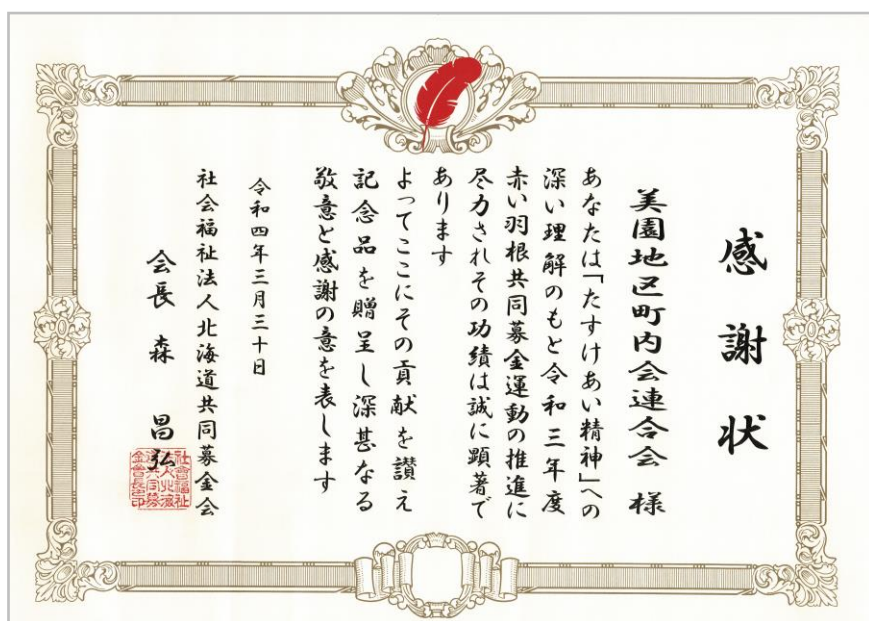 感謝状
美園地区町内会連合会 様
あなたは「たすけあい精神」への
深い理解のもと令和三年度
赤い羽根共同募金運動の推進に
尽力されその功績は誠に顕著で
あります
よってここにその貢献を讃え
記念品を贈呈し深甚なる
敬意と感謝の意を表します
令和四年三月三十日
社会福祉法人北海道共同募金会
会長 森 昌弘